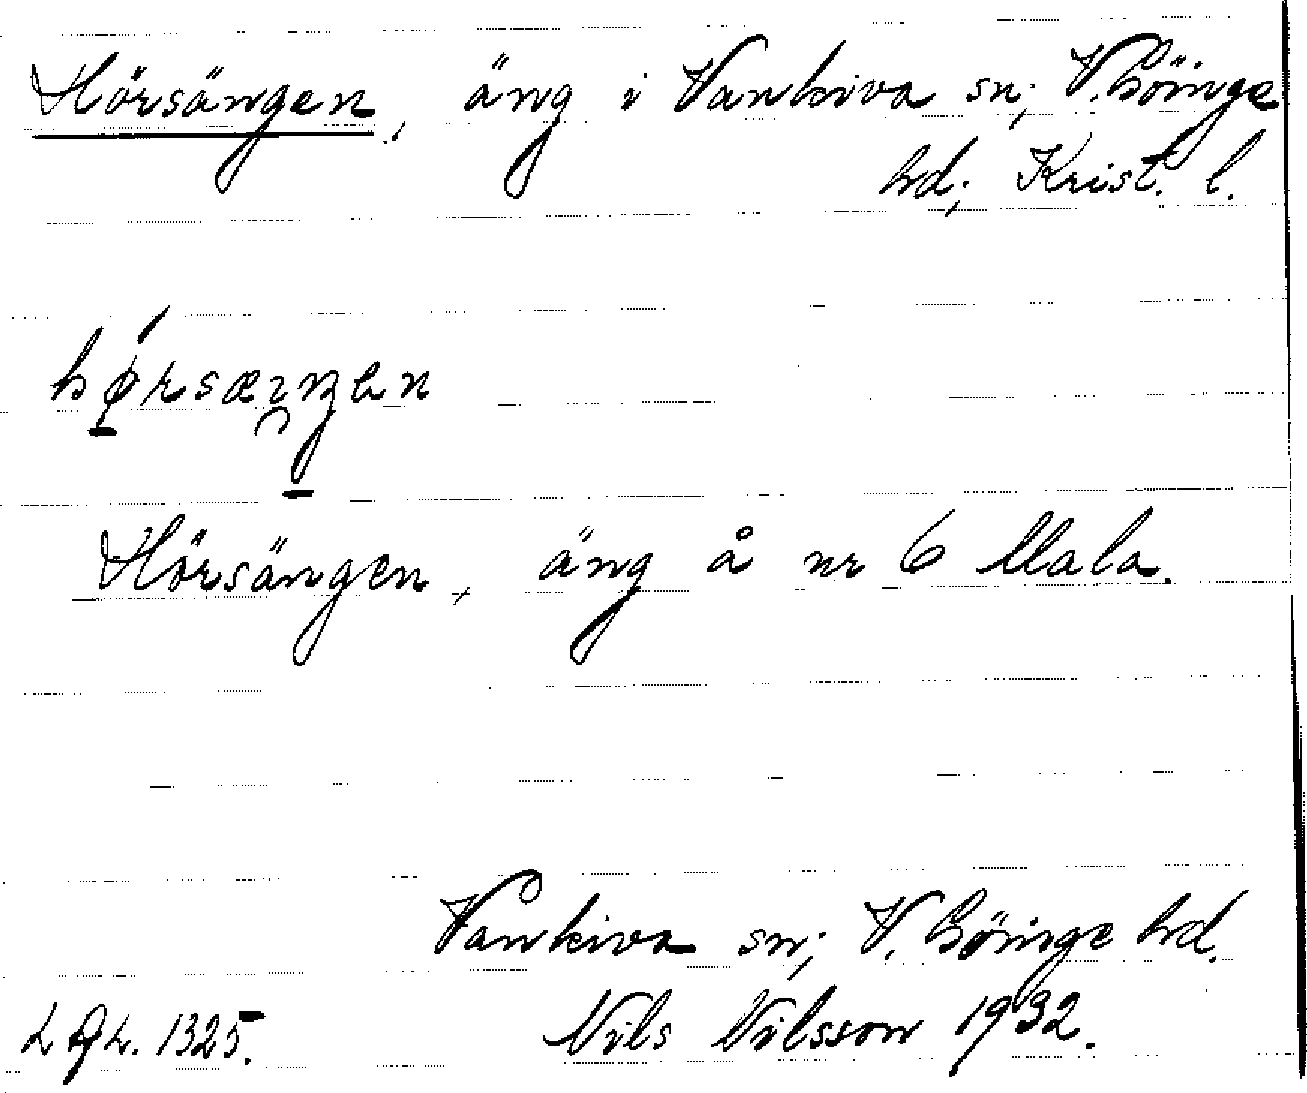 Hörsängen, äng i Vankiva sn; V. Göinge
hd; Krist. l.
hørsæŋen
Hörsängen, äng å nr 6 Mala.
Vankiva sn; V. Göinge hd.
Nils Nilsson 1932.
1325.